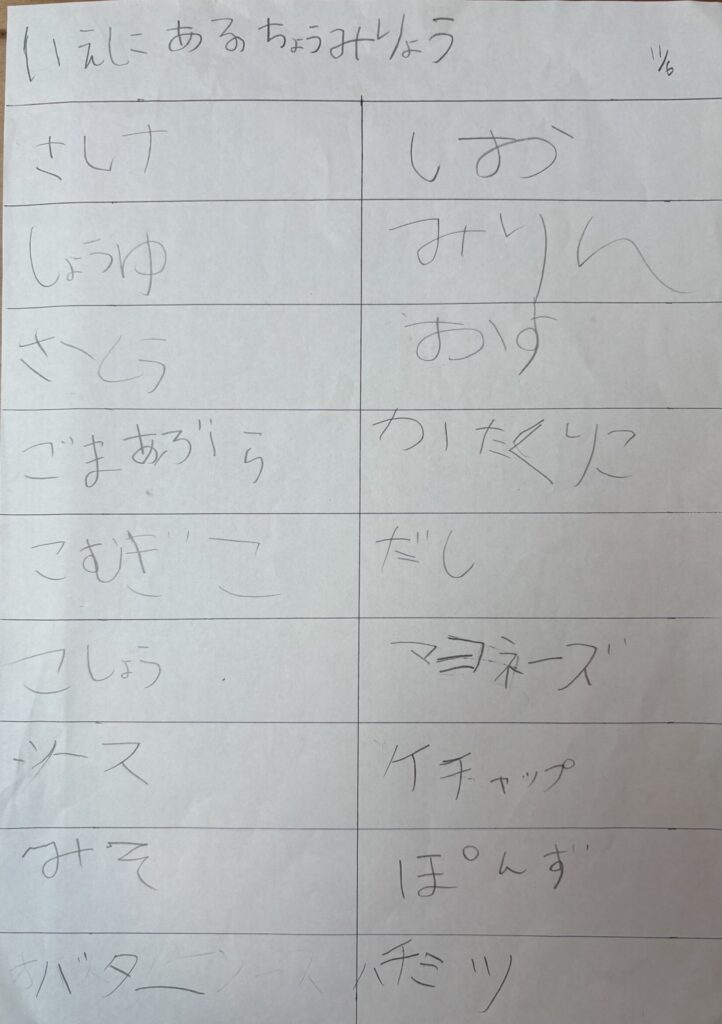 いえに あるのちょうみりょう 11/6
さしす しお
しょうゆ みりん
さとう おす
ごまあぶら かたくりこ
こむぎこ だし
こしょう マヨネーズ
ソース ケチャップ
みそ ぽんず
バター ハチミツ